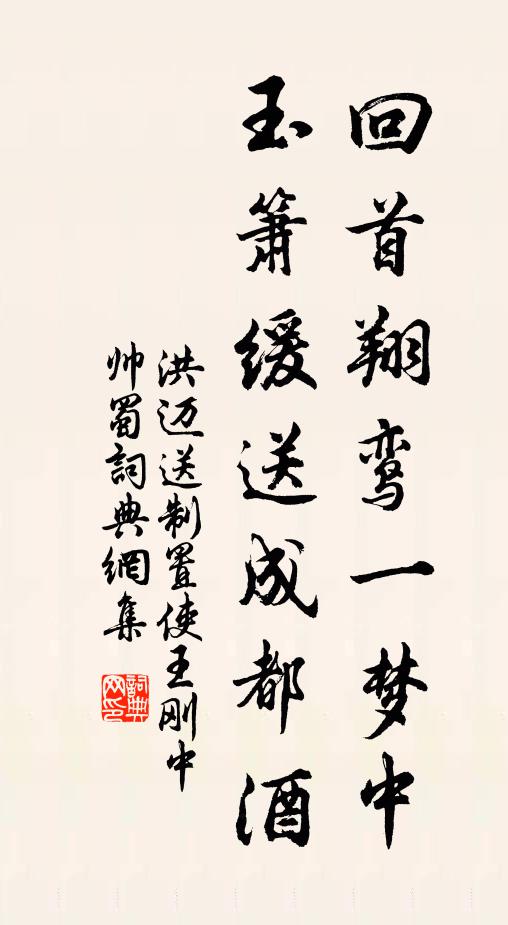 回首翔鸾一梦中
玉箫缓送成都酒
洪迈送制置使王刚中
帅蜀詞典網集
詞典网印